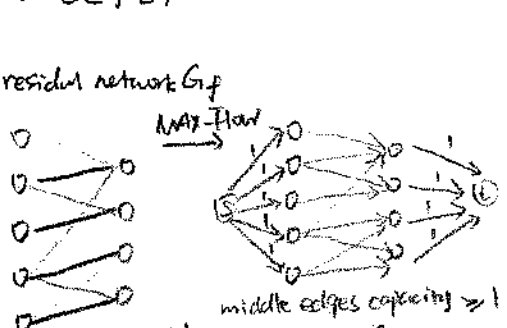 residul network Gf
MAX-Flow
1 1 1 1 1
1 1 1 1
S
t
middle edges capacity ⩾ 1